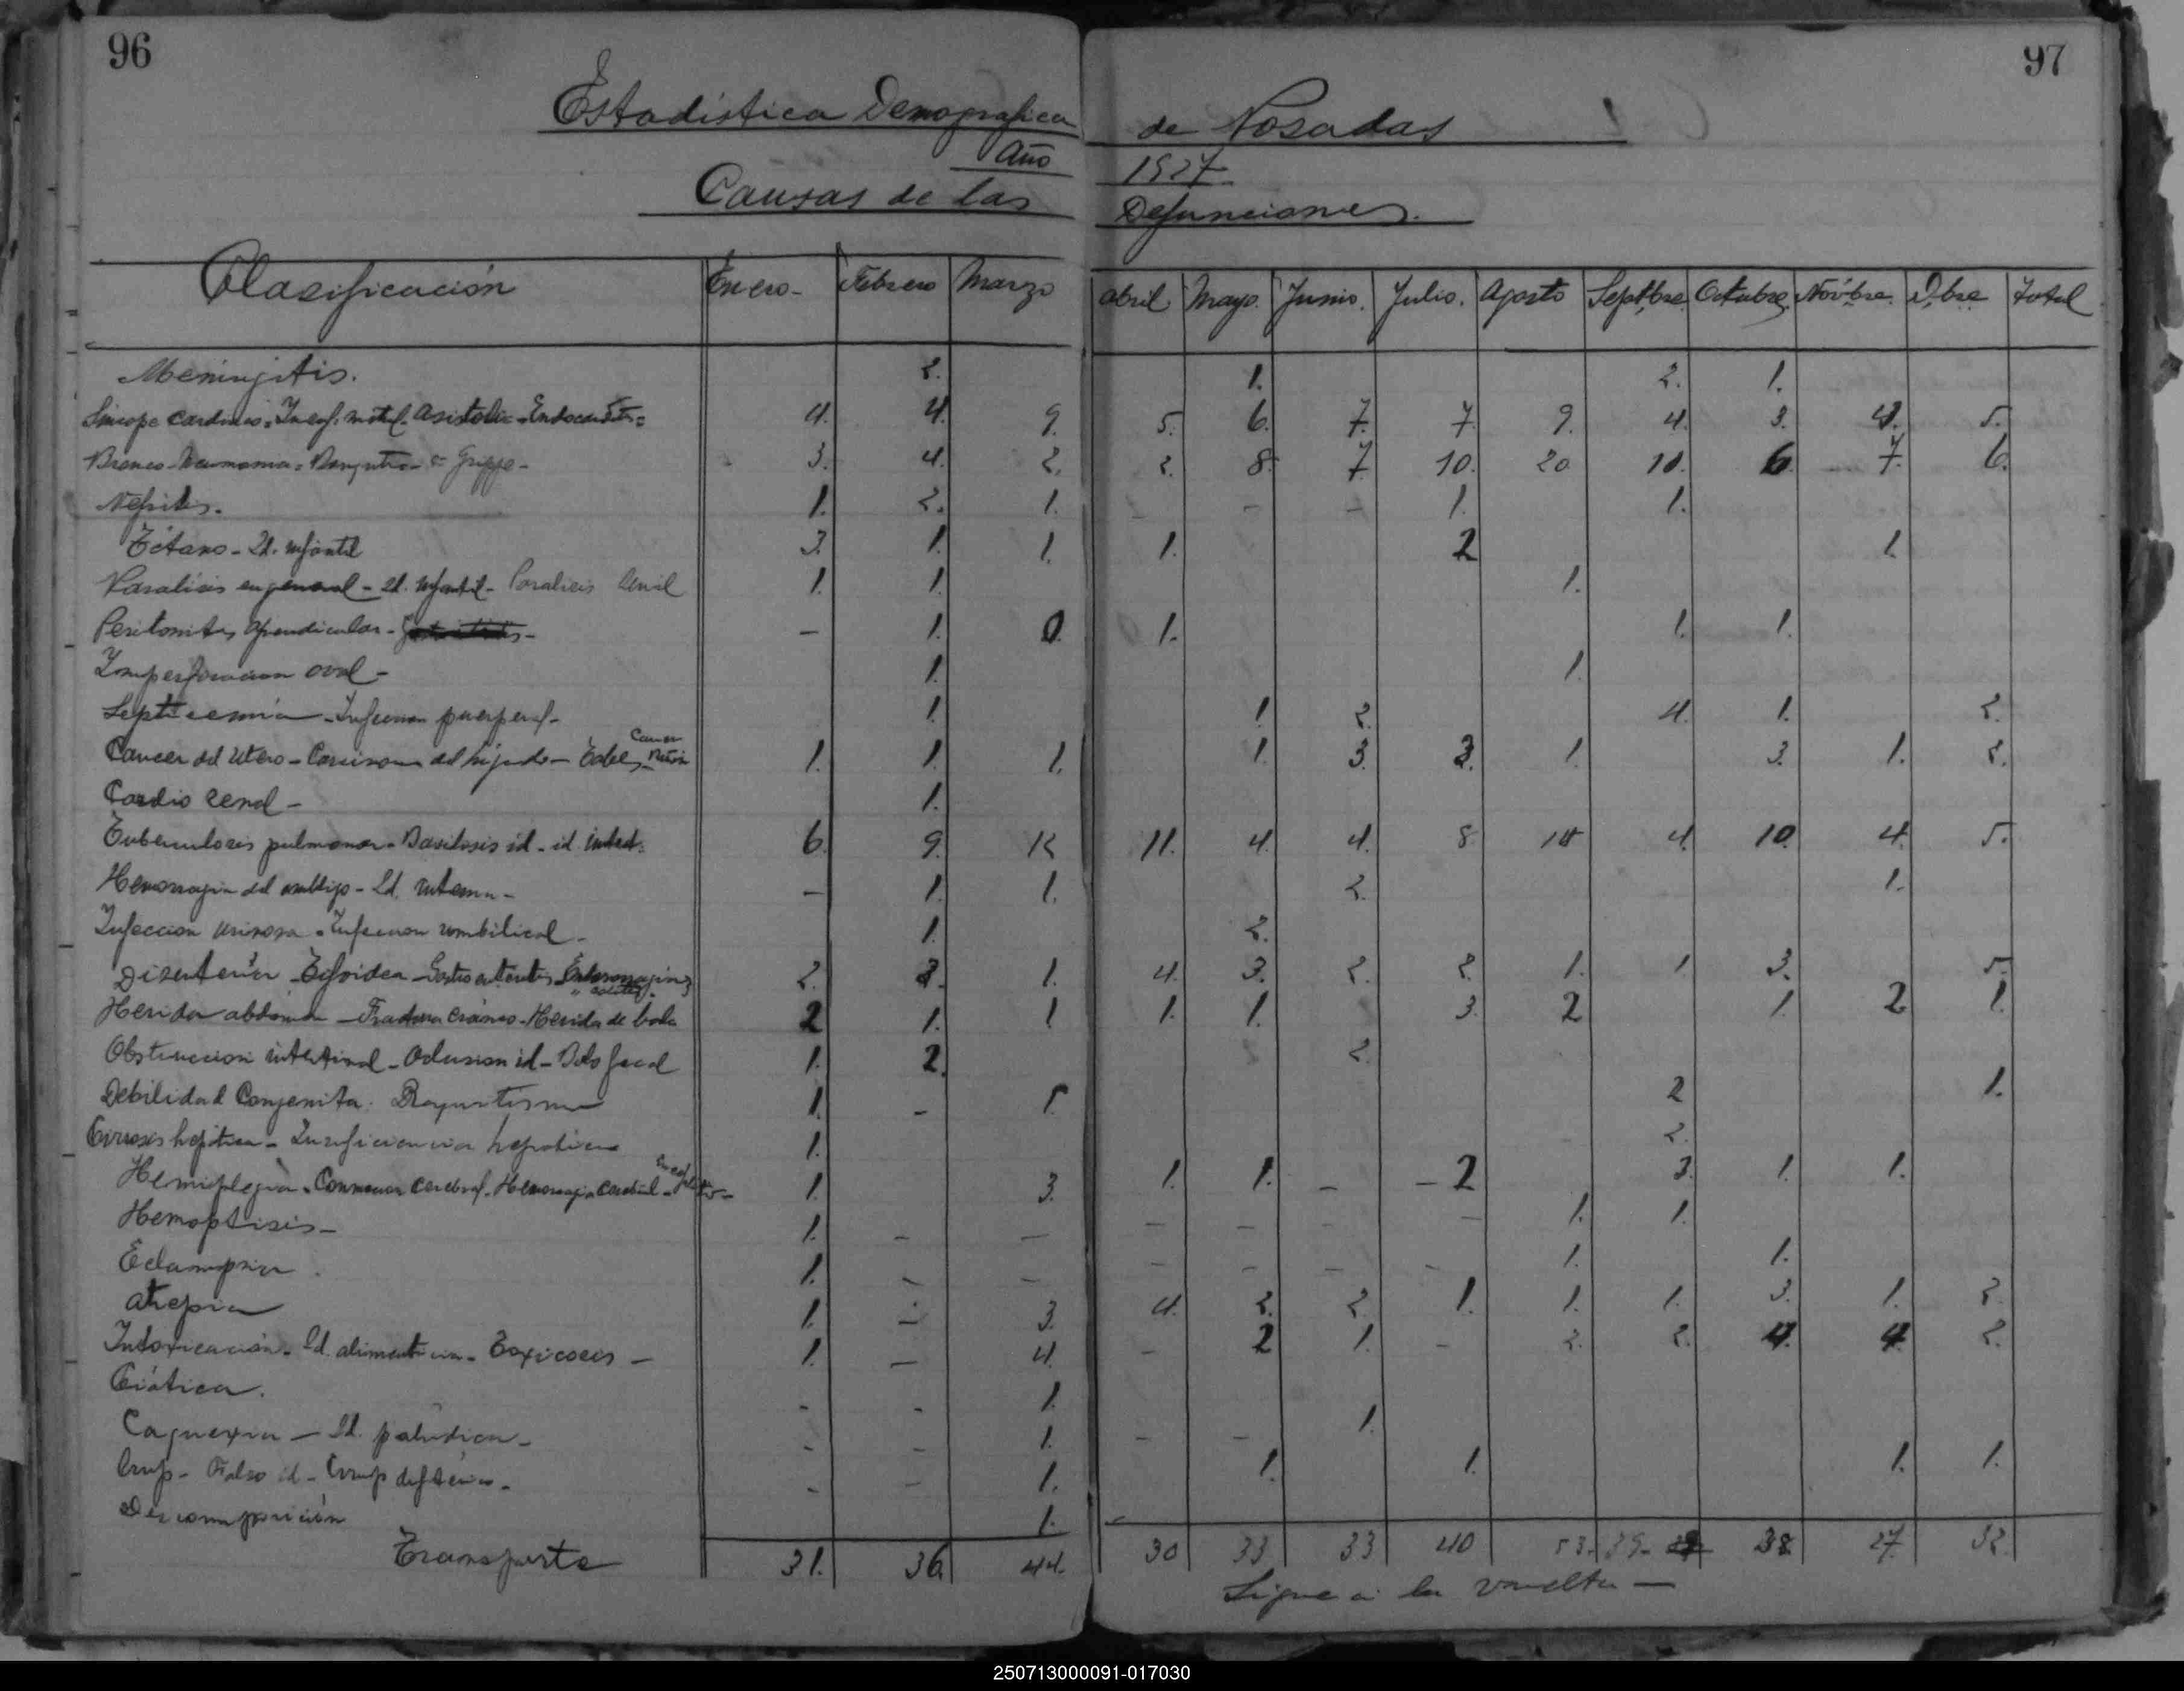 96
97
Estadistica Demografica de Posadas
Año 1927
Causas de las Defunciones.
Clasificación Enero- Febrero Marzo abril Mayo. Junio. Julio. Agosto Septbre Octubre. Novbre. Dbre Total
Meningitis. 2. 1. 2. 1.
Sincope cardiaco. mitral. Asistolia - Endocarditis 4. 4. 9. 5. 6. 7. 7. 9. 4. 3. 4. 5.
Bronco-Neumonia = Grippe - 3. 4. 2. 2. 8. 7 10. 20 10. 6. 7. 6.
Nefritis. 1. 2. 1. - - - 1. 1.
Tétano - Id. infantil 3. 1. 1. 1. 2 1.
Paralisis en general - Id. infantil - Paralicis 1. 1. 1.
Peritonitis Apendicular - - 1. 0. 1. 1. 1.
Imperforacion oval - 1. 1.
Septicemia - Infeccion puerperal - 1. 1. 2. 4. 1. 2.
Cancer del Utero - Carcinoma del higado - Cancer 1. 1. 1. 1. 3. 3. 1. 3. 1. 2.
Cardio renal - 1.
Tuberculosis pulmonar - Bacilosis id - id. intest. 6. 9. 11. 4. 4. 8 4. 10. 4. 5.
Hemorragia del ombligo - Id. interna - - 1. 1. 2. 1.
Infeccion urinosa - Infeccion umbilical - 1. 2.
Disenteria - Tifoidea - Gastro enteritis 2. 3. 1. 4. 3. 2. 2. 1. 1 3. 5.
Herida abdomen - Fractura cráneo - Herida de bala 2 1. 1 1. 1. 3. 2 1. 2 1.
Obstruccion intestinal - Oclusion id - fecal 1. 2. 2.
Debilidad Congenita. Raquitismo 1. - 1. 2 1.
Cirrosis hepática - Insuficiencia hepatica 1. 2.
Hemiplegia - Conmocion cerebral - Hemorragia cerebral - 1. 3. 1. 1. - - 2 3. 1. 1.
Hemoptisis - 1. - - - - - 1. 1.
Eclampsia. 1. - - - - - - 1. 1.
Atrepsia 1. - 3. 4. 2. 2. 1. 1. 1. 3. 1. 2.
Intoxicación - Id. alimenticia - Toxicocis - 1. - 4. - 2 1. - 2. 2. 4. 4. 2.
Ciática. - - 1.
Caquexia - Id. paludica - - - 1. - - 1.
Crup - Falso id - Crup difterico - - - 1. 1. 1. 1. 1.
Descomposición 1.
Transporte 31. 36. 44. 30 33 33 40 53. 39. 38. 27. 32.
Sigue a la vuelta -
250713000091-017030